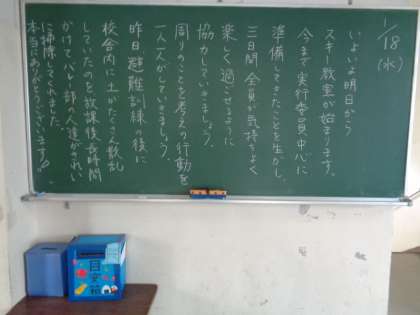 1/18
(水)
いよいよ明日から
スキー教室が始まります。
今まで実行委員中心に
準備してきたことを生かし、
三日間全員が気持ちよく
楽しく過ごせるように
協力していきましょう。
周りのことを考えた行動を
一人一人がしていきましょう。
昨日、避難訓練の後に
校舎内に土がたくさん散乱
していたのを放課後長時間
かけてバレー部の人達がきれい
に掃除してくれました。
本当にありがとうございます!!